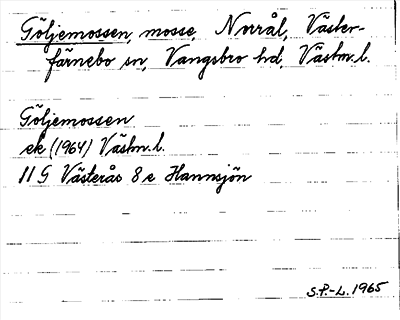 Göljemossen, mosse, Norrål, Väster-
färnebo sn, Vangsbro hd, Västm.l.
Göljemossen
ek (1964) Västm.l.
11 G Västerås 8 e Hannsjön
S.P.-L. 1965